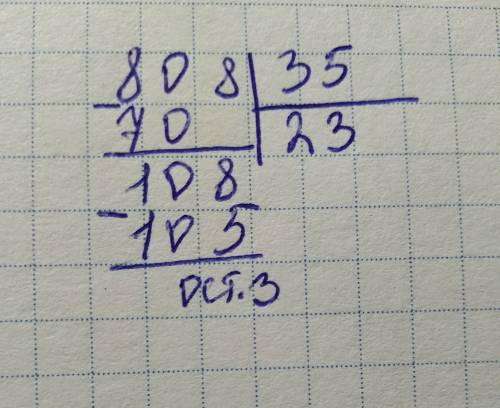 808 35
- 70 23
108
- 105
ост. 3